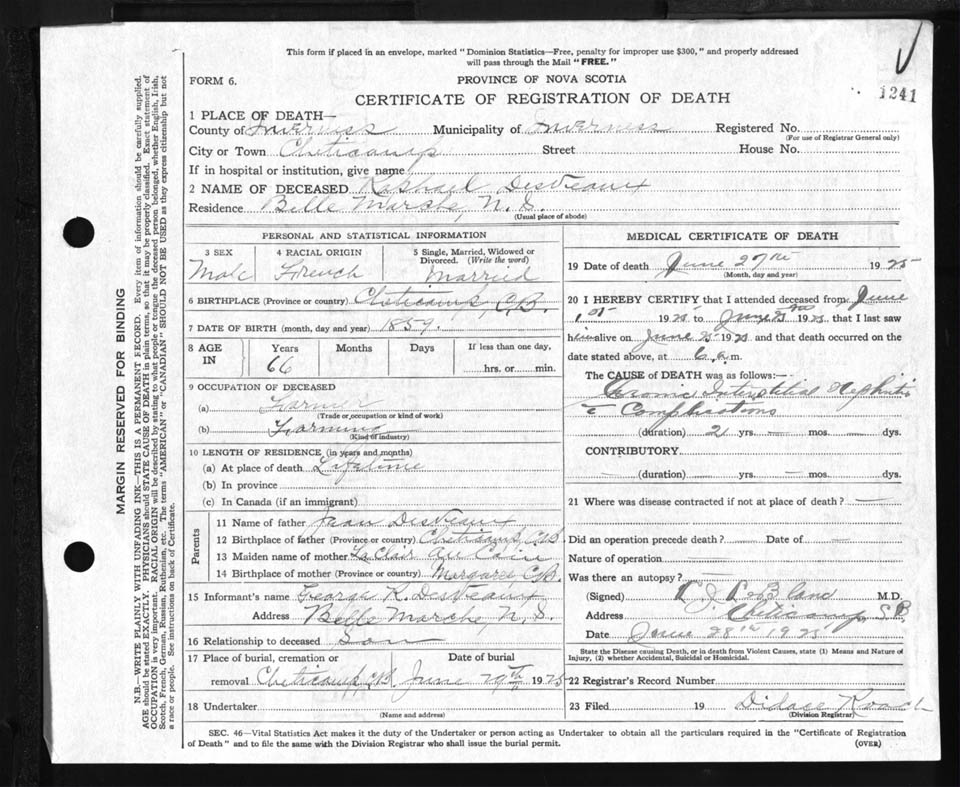 This form if placed in an envelope, marked "Dominion Statistics—Free, penalty for improper use $300," and properly addressed
will pass through the Mail "FREE."
FORM 6.
PROVINCE OF NOVA SCOTIA
1241
CERTIFICATE OF REGISTRATION OF DEATH
MARGIN RESERVED FOR BINDING
N.B.—WRITE PLAINLY WITH UNFADING INK—THIS IS A PERMANENT RECORD. Every item of information should be carefully supplied.
AGE should be stated EXACTLY. PHYSICIANS should STATE CAUSE OF DEATH in plain terms, so that it may be properly classified. Exact statement of
OCCUPATION is very important. RACIAL ORIGIN will be described by stating to what people or tongue the deceased person belonged, whether English, Irish,
Scotch, French, German, Russian, Ruthenian, etc. The terms "AMERICAN" or "CANADIAN" SHOULD NOT BE USED as they express citizenship but not
a race or people. See instructions on back of Certificate.
1 PLACE OF DEATH—
County of Inverness Municipality of Inverness Registered No.
(For use of Registrar General only)
City or Town Cheticamp Street House No.
If in hospital or institution, give name
2 NAME OF DECEASED Raphael DesVeaux
Residence Belle Marche, N. S.
(Usual place of abode)
PERSONAL AND STATISTICAL INFORMATION
3 SEX 4 RACIAL ORIGIN 5 Single, Married, Widowed or
Divorced. (Write the word)
Male French Married
6 BIRTHPLACE (Province or country) Cheticamp, C.B.
7 DATE OF BIRTH (month, day and year) 1859.
8 AGE IN Years Months Days If less than one day,
66 hrs. or min.
9 OCCUPATION OF DECEASED
(a) Farmer
(Trade or occupation or kind of work)
(b) Farming
(Kind of industry)
10 LENGTH OF RESIDENCE (in years and months)
(a) At place of death Lifetime
(b) In province
(c) In Canada (if an immigrant)
Parents
11 Name of father Jean DesVeaux
12 Birthplace of father (Province or country) Cheticamp, CB
13 Maiden name of mother
14 Birthplace of mother (Province or country) Margaree C.B.
15 Informant's name George R. DesVeaux
Address Belle Marche, N. S.
16 Relationship to deceased Son
17 Place of burial, cremation or Date of burial
removal Cheticamp, CB June 29th 1925
18 Undertaker
(Name and address)
MEDICAL CERTIFICATE OF DEATH
19 Date of death June 27th 1925
(Month, day and year)
20 I HEREBY CERTIFY that I attended deceased from June
1st 1925 to June 1925, that I last saw
him alive on June 25 1925 and that death occurred on the
date stated above, at 6 a.m.
The CAUSE of DEATH was as follows:—
Chronic Interstitial Nephritis
c Complications
(duration) 2 yrs. — mos. — dys.
CONTRIBUTORY
(duration) — yrs. — mos. — dys.
21 Where was disease contracted if not at place of death? —
Did an operation precede death? — Date of —
Nature of operation —
Was there an autopsy? —
(Signed) M.D.
Address Cheticamp,
Date June 28th 1925
State the Disease causing Death, or in death from Violent Causes, state (1) Means and Nature of
Injury, (2) whether Accidental, Suicidal or Homicidal.
22 Registrar's Record Number
23 Filed 19 Didace Roach
(Division Registrar)
SEC. 46—Vital Statistics Act makes it the duty of the Undertaker or person acting as Undertaker to obtain all the particulars required in the "Certificate of Registration
of Death" and to file the same with the Division Registrar who shall issue the burial permit.
(OVER)